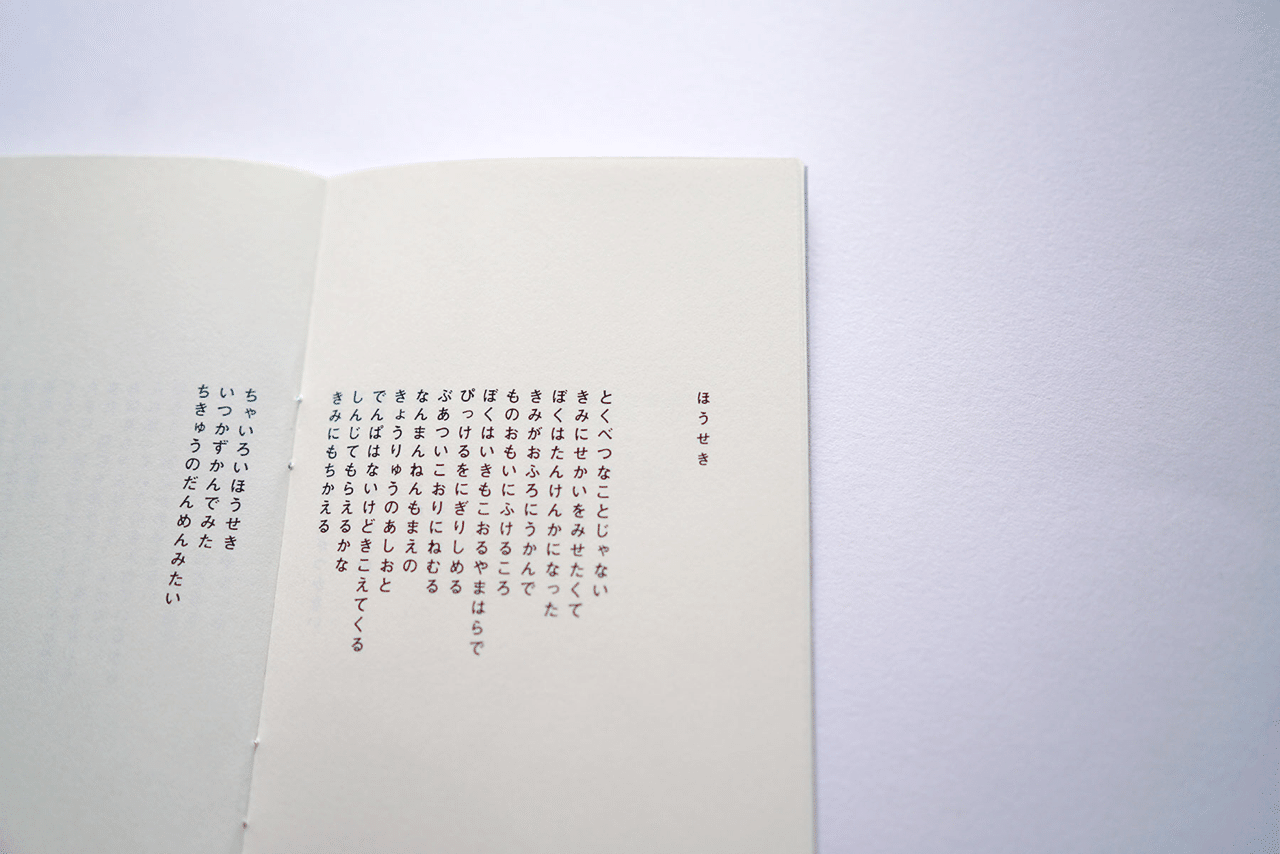 ほうせき
とくべつなことじゃない
きみにせかいをみせたくて
ぼくはたんけんかになった
きみがおふろにうかんで
ものおもいにふけるころ
ぼくはいきもこおるやまはらで
ぴっけるをにぎりしめる
ぶあついこおりにねむる
なんまんねんもまえの
きょうりゅうのあしおと
でんぱはないけどきこえてくる
しんじてもらえるかな
きみにもちかえる
ちゃいろいほうせき
いつかずかんでみた
ちきゅうのだんめんみたい